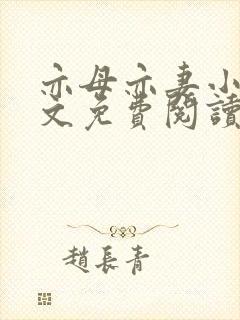 亦母亦妻小
文免費閱讀
趙長青